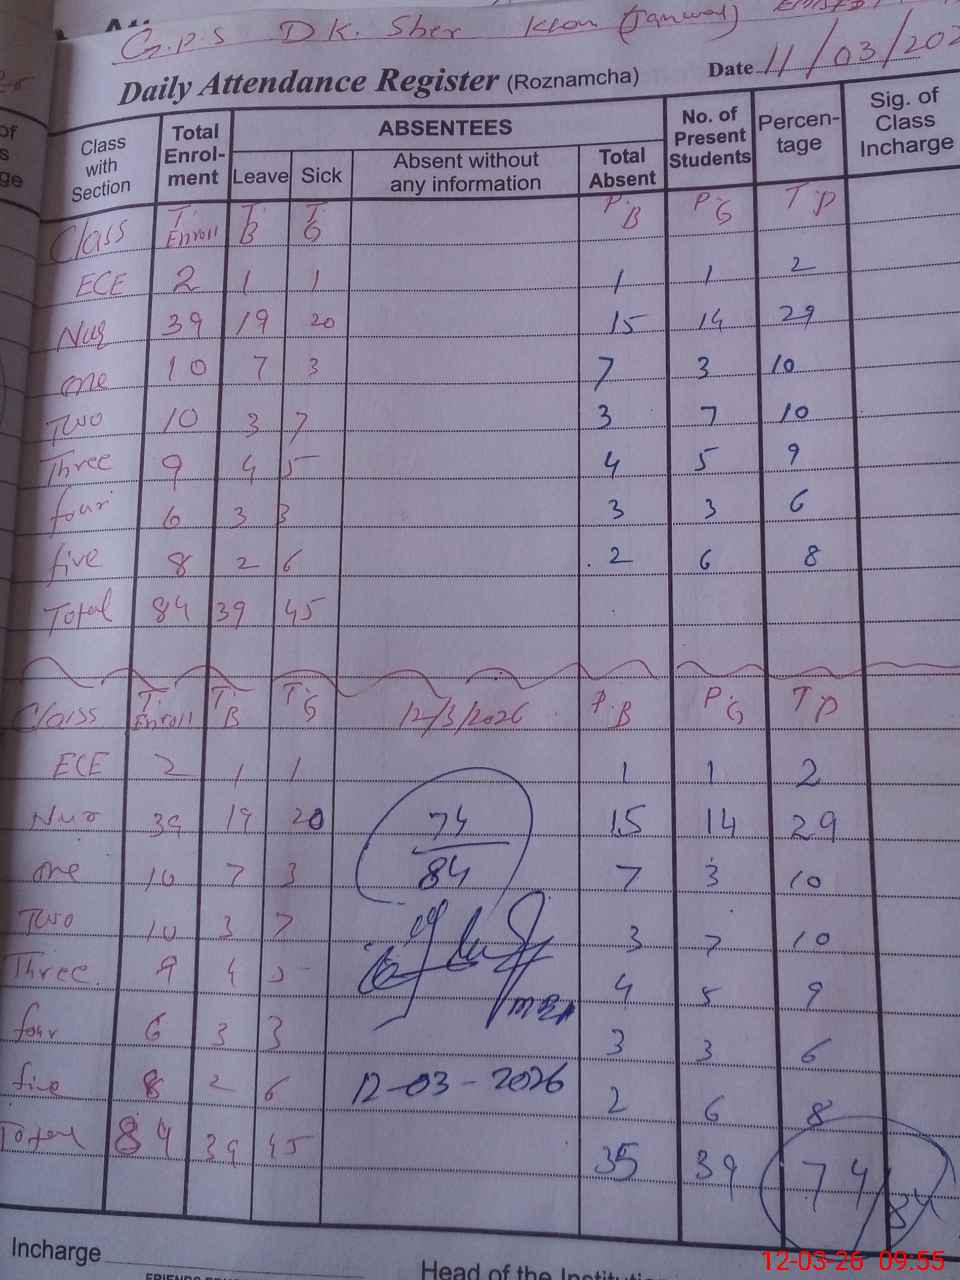 G.P.S DK. Sher Khan
Daily Attendance Register (Roznamcha) Date 11/03/202
Class with Section Total Enrol-ment ABSENTEES Leave Sick Absent without any information Total Absent No. of Present Students Percen-tage Sig. of Class Incharge
Class T. Enroll T. B T. G P. B P. G T P
ECE 2 1 1 1 1 2
Nur 39 19 20 15 14 29
one 10 7 3 7 3 10
Two 10 3 7 3 7 10
Three 9 4 5 4 5 9
four 6 3 3 3 3 6
five 8 2 6 2 6 8
Total 84 39 45
Class T. Enroll T. B T. G 12/3/2026 P. B P. G T P
ECE 2 1 1 1 1 2
Nur 39 19 20 74/84 15 14 29
one 10 7 3 7 3 10
Two 10 3 7 3 7 10
Three. 9 4 5 4 5 9
four 6 3 3 3 3 6
five 8 2 6 12-03-2026 2 6 8
Total 84 39 45 35 39 74/84
Incharge
Head of the Institution
12-03-26 09:55